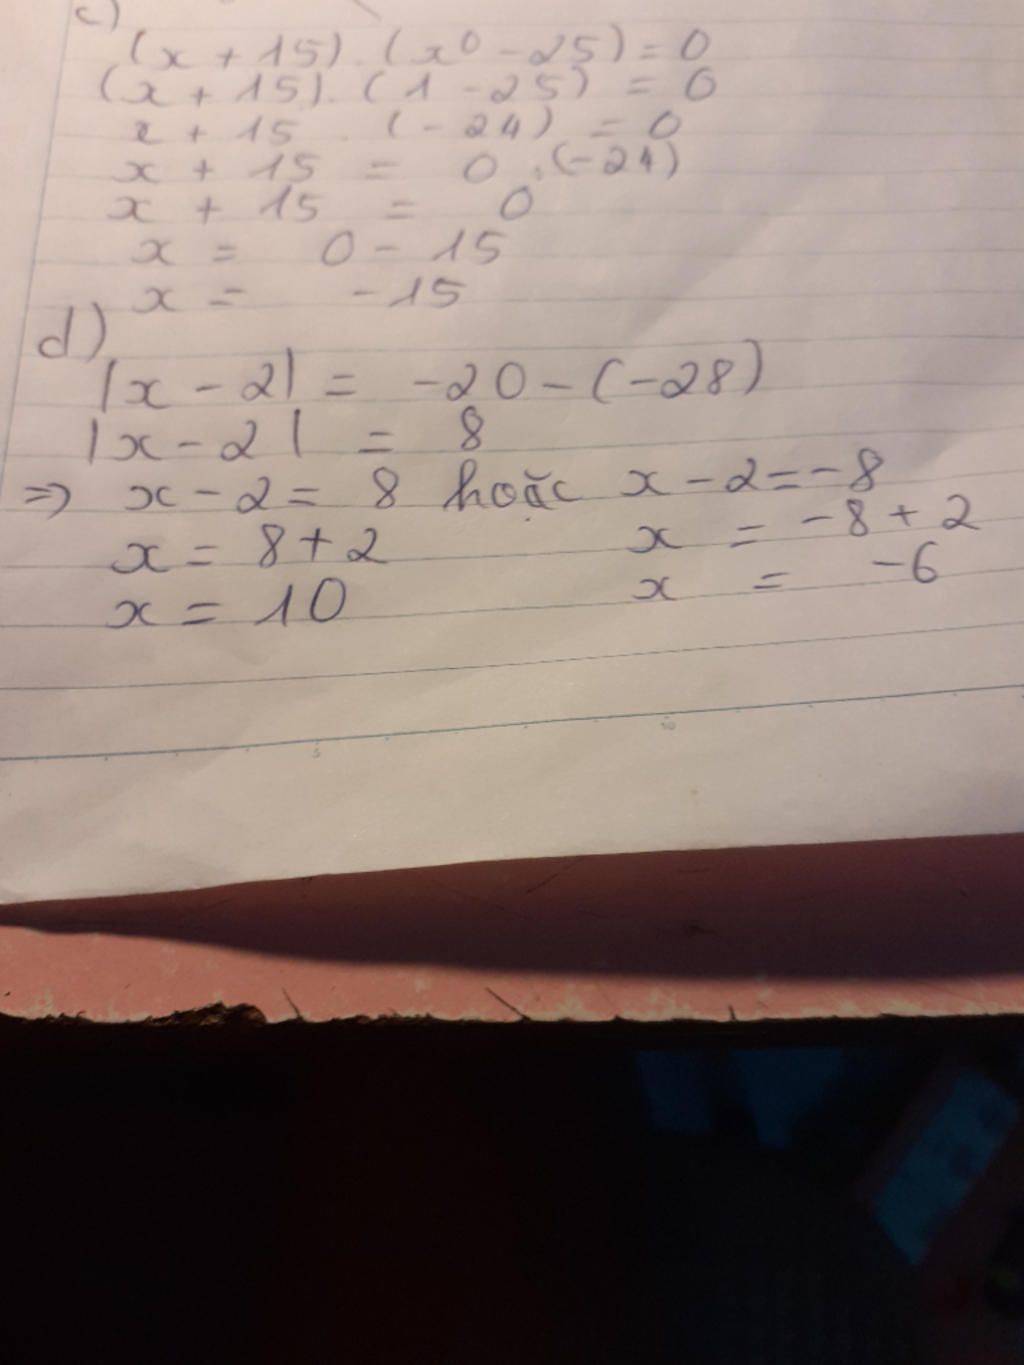 c)
(x + 15) . (x⁰ - 25) = 0
(x + 15) . (1 - 25) = 0
x + 15 . (-24) = 0
x + 15 = 0 . (-24)
x + 15 = 0
x = 0 - 15
x = -15
d)
|x - 2| = -20 - (-28)
|x - 2| = 8
⇒ x - 2 = 8 hoặc x - 2 = -8
x = 8 + 2 x = -8 + 2
x = 10 x = -6
5 10